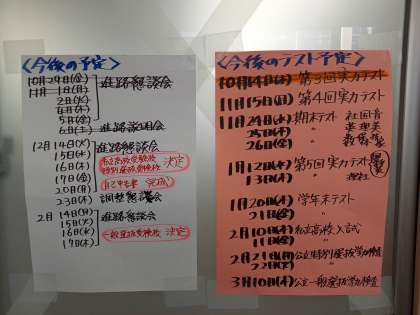 〈今後の予定〉
10月29日(金)
11月1日(月) 進路懇談会
2日(火)
4日(木)
5日(金)
6日(土) 進路説明会
12月14日(火) 進路懇談会
15日(水)
16日(木) 決定
17日(金)
20日(月)
23日(木) 調整懇談会
2月14日(月) 進路懇談会
15日(火)
16日(水) 一般選抜受検校 決定
17日(木)
〈今後のテスト予定〉
10月14日(木) 第3回実力テスト
11月15日(月) 第4回実力テスト
11月24日(水) 期末テスト 社国音
25日(木) 〃
26日(金) 〃
1月12日(水) 第5回実力テスト
13日(木) 〃 理社
1月20日(木) 学年末テスト
21日(金) 〃
2月10日(木) 私立高校入試
11日(金) 〃
2月21日(月) 公立特別選抜学力検査
22日(火) 〃
3月10日(木) 公立一般選抜学力検査